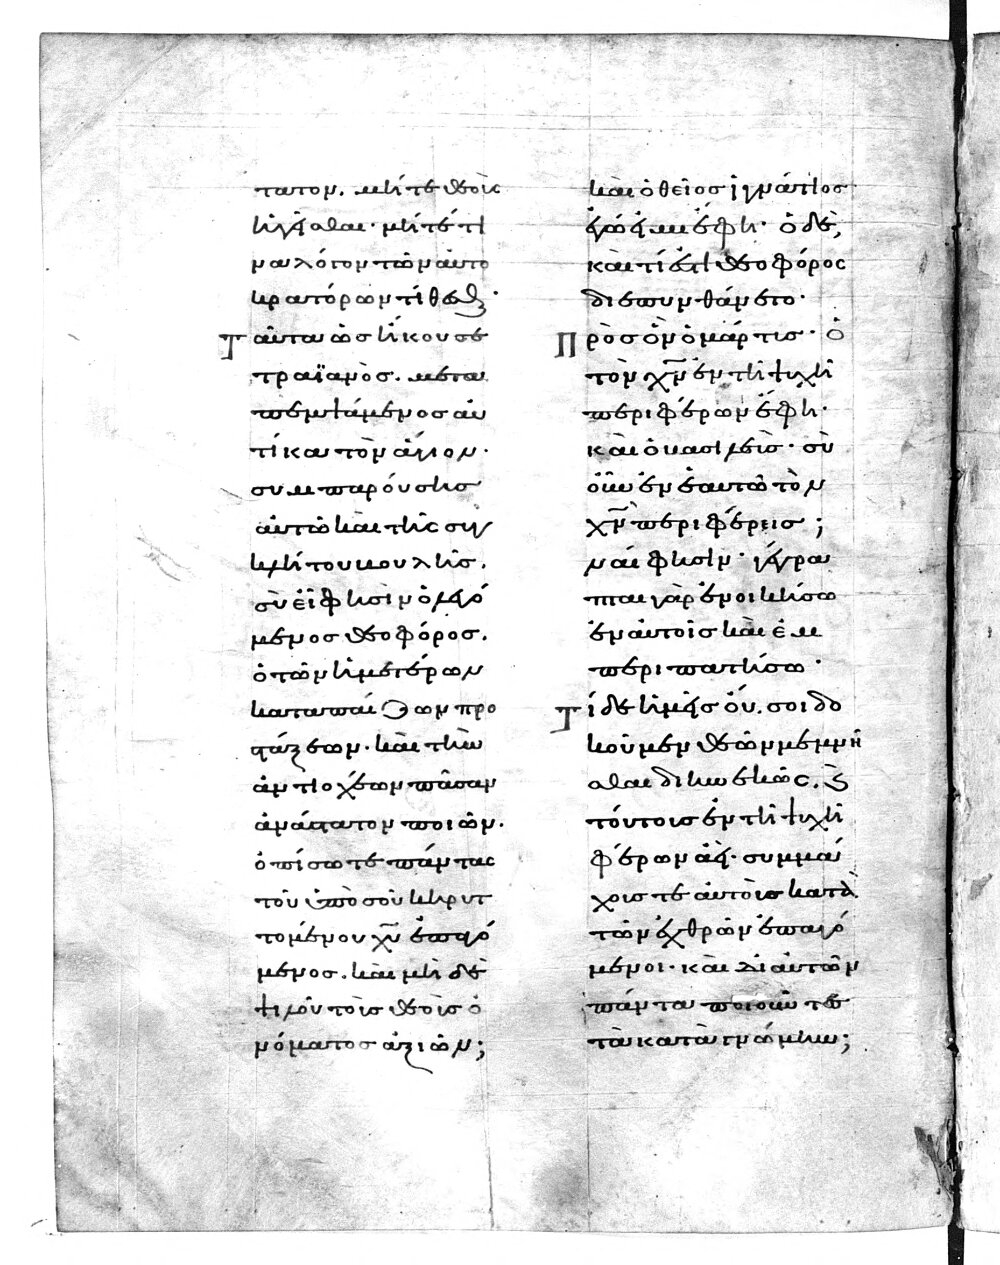 τατον. μήτε θεοὺς
ἡγεῖσθαι· μήτέ τι
ναυλότον τῶν αὐτο
κρατόρων τίθεσθαι·
Ταῦτα ὡς ἤκουσε
τραϊανὸς. μετα
πεμψάμενος αὐ
τίκα τὸν ἅγιον·
συμπαρούσης
αὐτῶ καὶ τῆς συγ
κλήτου βουλῆς.
σὺ εἶ φησὶν ὁ λεγό
μενος θεοφόρος.
ὁ τῶν ἡμετέρων
καταπαίζων προ
στάξεων. καὶ τὴν
ἀντιοχέων πᾶσαν
ἀνάστατον ποιῶν.
ὀπίσω τε πάντας
τοῦ ὑπὸ σοῦ κηρυτ
τομένου χῦ ἐπαγό
μενος. καὶ μὴ δὲ
ψιλοῦ τοῖς θεοῖς ὀ
νόματος ἀξιῶν;
καὶ ὁ θεῖος ἰγνάτιος
ἐγώ εἰμι ἔφη· ὁ δὲ,
καὶ τί ἐστὶ θεοφόρος
διεπυνθάνετο·
Πρὸς ὃν ὁ μάρτις· ὁ
τὸν χν ἐν τῆ ψυχῆ
περιφέρων ἔφη·
καὶ ὁ βασιλεὺς· σὺ
οὖν ἐν ἑαυτῶ τὸν
χν περιφέρεις;
ναὶ φησὶν· γέγρα
πται γὰρ ἐνοικήσω
ἐν αὐτοῖς καὶ ἐμ
περιπατήσω·
Τί δὲ ἡμεῖς οὔ. σοι δο
κοῦμεν θεῶν μεμνῆ
σθαι διηνεκῶς. καὶ
τούτοις ἐν τῆ ψυχῆ
φέρων ἀεί· συμμά
χοις τε αὐτοῖς κατὰ
τῶν ἐχθρῶν ἐπαγό
μενοι· καὶ δι αὐτῶν
πάντα ποιοῦντες
τὰ κατὰ γνώμην;